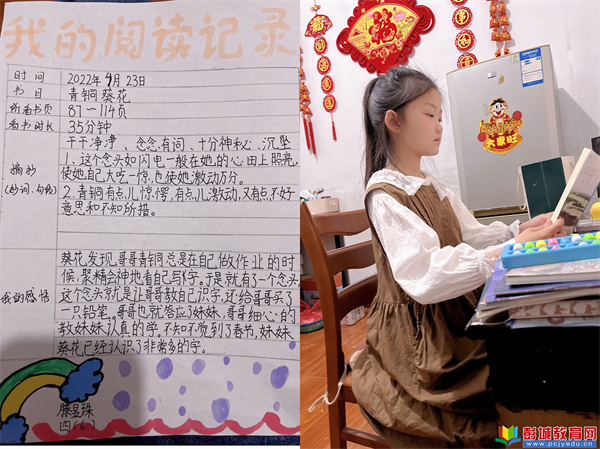 我的阅读记录
时间 2022年9月23日
书目 青铜葵花
所看书页 87—114页
看书时长 35分钟
摘抄(好词、句段)
干干净净、念念有词、十分神秘、沉坠
1、这个念头如闪电一般在她的心田上照亮,
使她自己大吃一惊,也使她激动万分。
2、青铜有点儿惊愕,有点儿激动,又有点不好
意思和不知所措。
我的感悟
葵花发现,哥哥青铜总是在自己做作业的时
候,聚精会神地看自己写字。于是就有了一个念头,
这个念头就是让哥哥教自己识字,还给哥哥买了
一只铅笔。哥哥也就答应了妹妹,哥哥细心的
教妹妹认真的学。不知不觉到了春节,妹妹
葵花已经认识了非常多的字。
滕昱珠
四(6)
福
大家旺
彭城教育网
www.pcjyedu.cn